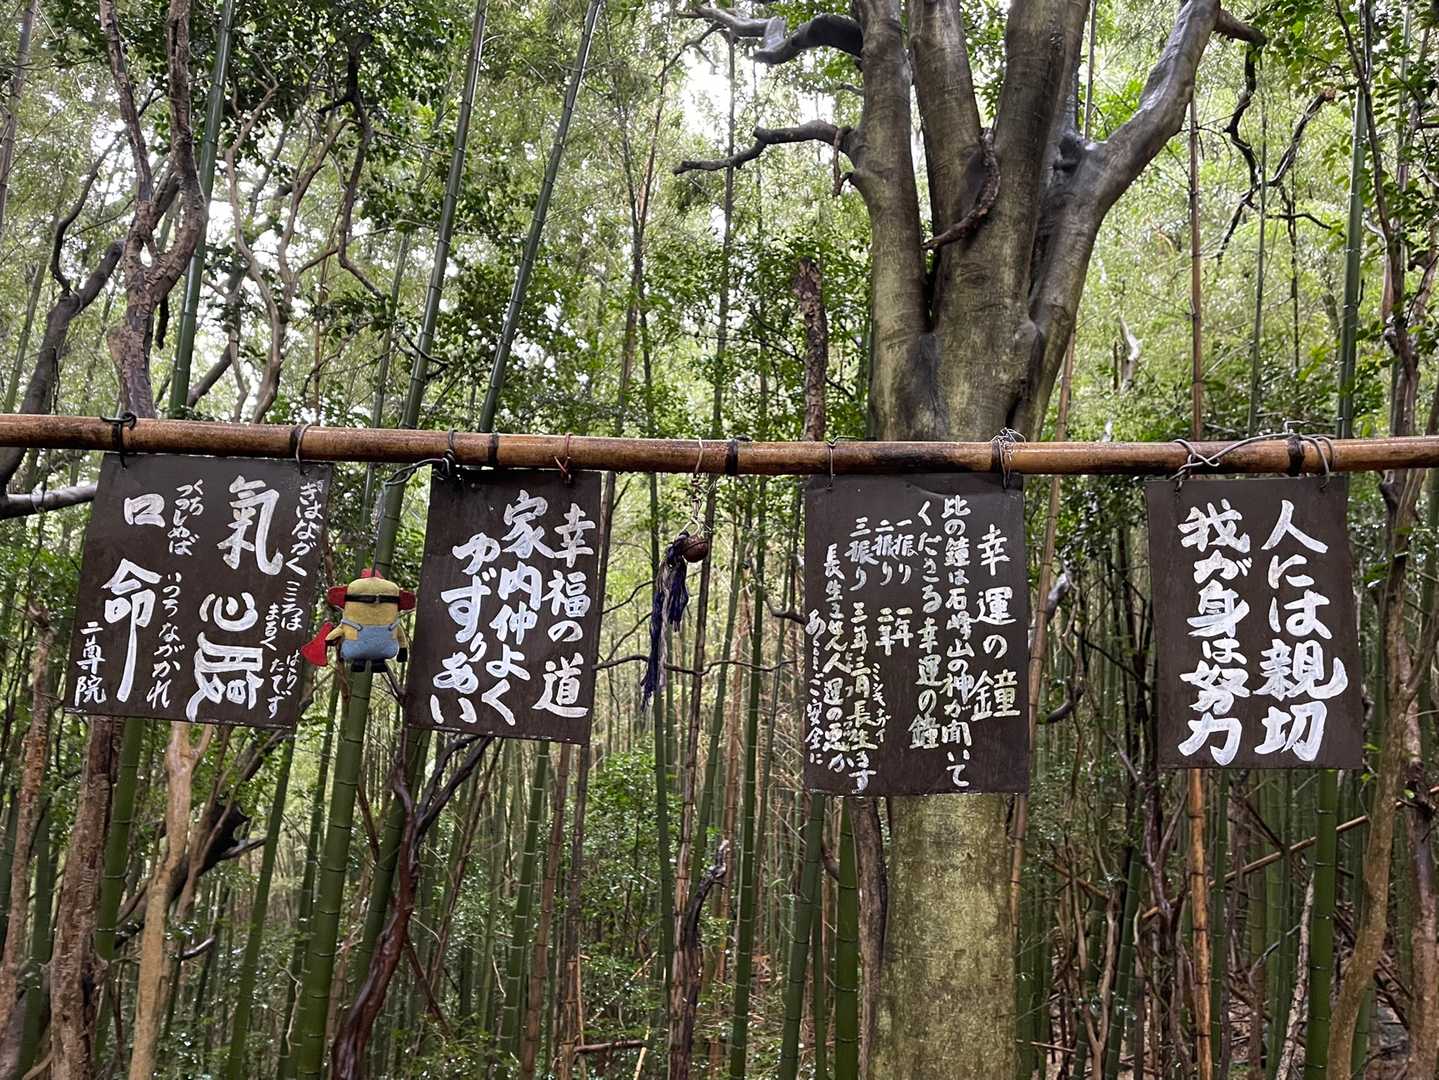 人には親切
我が身は努力
幸運の鐘
比の鐘は石峰山の神が聞いて
くださる幸運の鐘
一振り 一年
二振り 二年
三振り 三年三月長生きす
ご安全に
幸福の道
家内仲よく
ゆずりあい
きはながく こころは まるく はらたてず
氣 心 腹
くちつつしめば いのちながかれ
口 命
二尊院